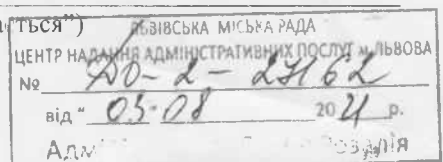 ється")
ЛЬВІВСЬКА МІСЬКА РАДА
ЦЕНТР НАДАННЯ АДМІНІСТРАТИВНИХ ПОСЛУГ м. ЛЬВОВА
№ АО-2-27162
від " 03-08 20 21 р.